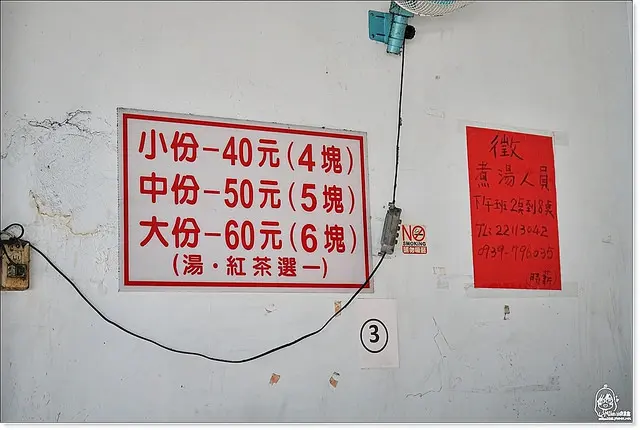 小份－40元(4塊)
中份－50元(5塊)
大份－60元(6塊)
(湯・紅茶選一)
NO
SMOKING
請勿吸菸
3
徵
煮湯人員
下午班2點到8點
TL:22113042
0939-796035
時薪